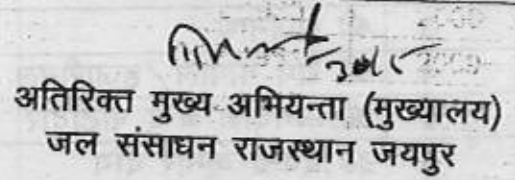 अतिरिक्त मुख्य अभियन्ता (मुख्यालय)
जल संसाधन राजस्थान जयपुर